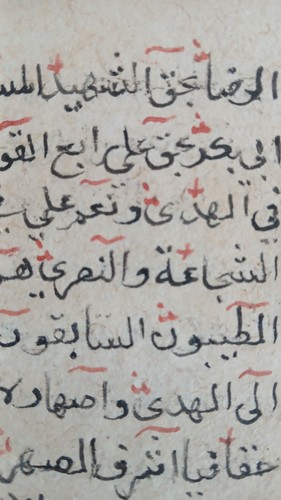 الرضا بحق الشهيد المس
ابي بكر بحق علي ابع القو
في الهدى ونعم علي
الشجاعة والنصرى هم
المطيبون السابقون
الى الهدى واصهاره
اشرف الصهر